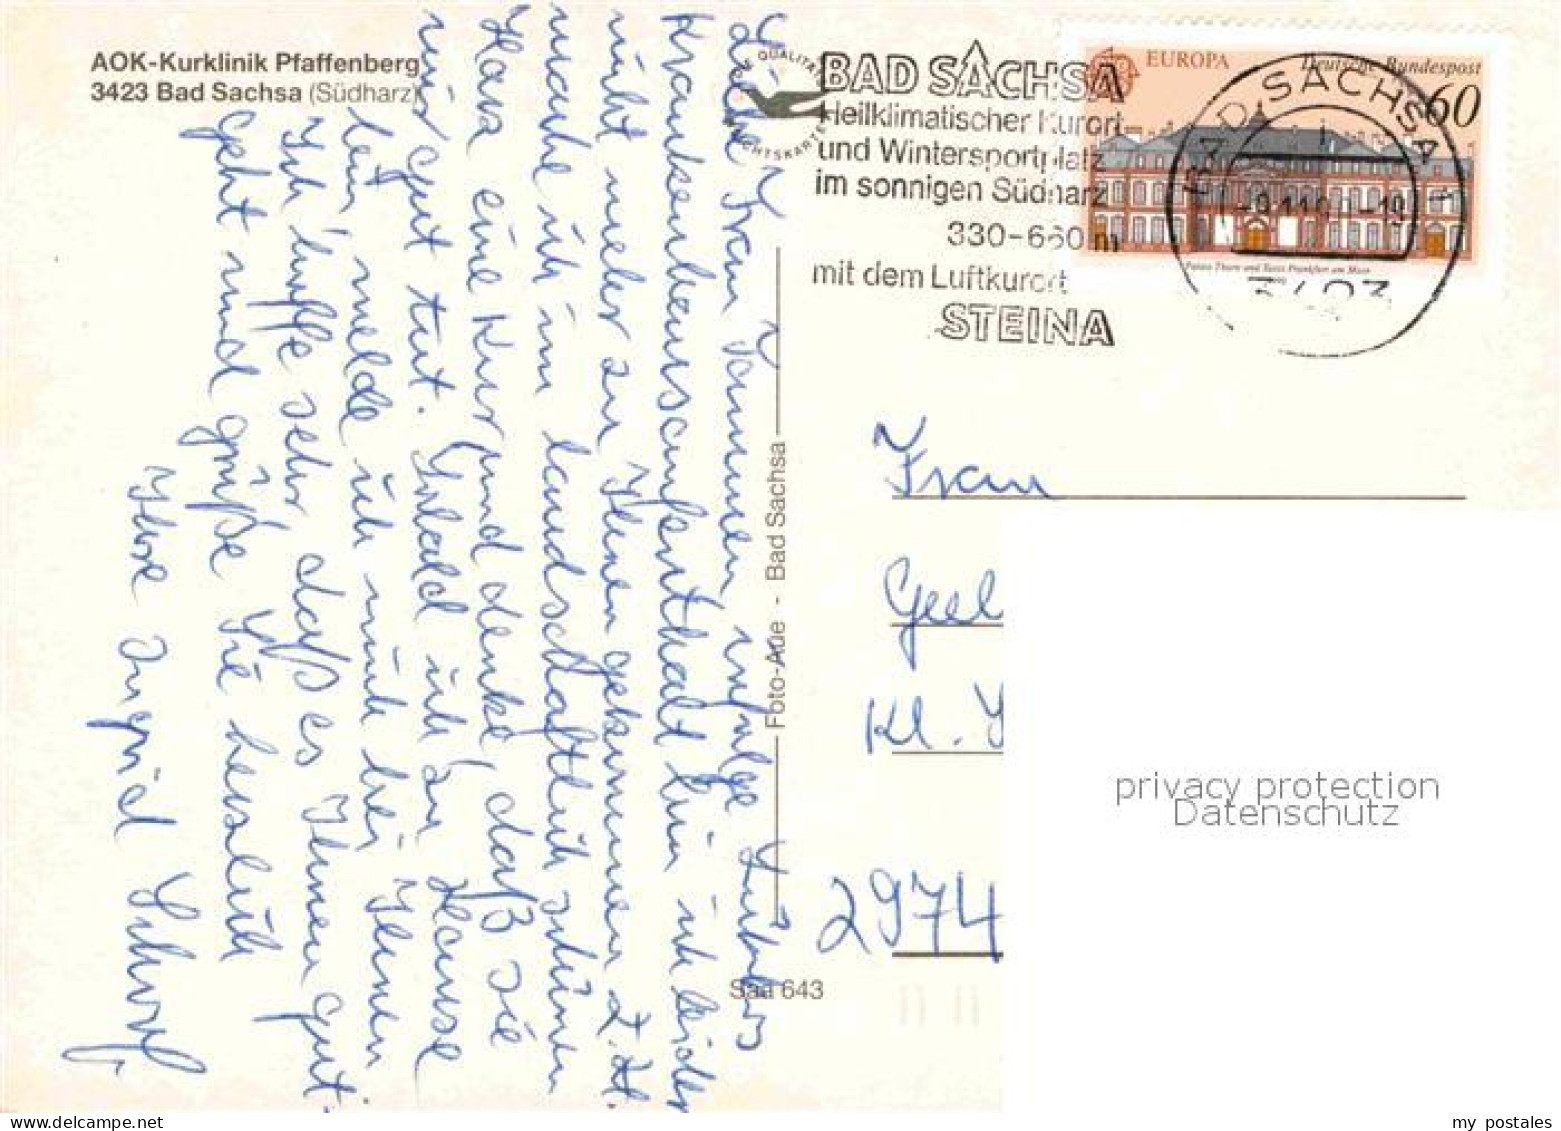 AOK-Kurklinik Pfaffenberg
3423 Bad Sachsa (Südharz)
QUALITÄTS
ANSICHTSKARTE
BAD SACHSA
Heilklimatischer Kurort
und Wintersportplatz
im sonnigen Südharz
330-660 m
mit dem Luftkurort
STEINA
EUROPA
Deutsche Bundespost
60
Palais Thurn und Taxis Frankfurt am Main
BAD SACHSA
3423
Liebe Frau infolge
Krankenhausaufenthalt bin ich leider
nicht mehr zu Ihnen gekommen. Z. Zt.
mache ich im landschaftlich schönen
Harz eine Kur und denke, daß sie
mir gut tut. Sobald ich zu Hause
bin, melde ich mich bei Ihnen
Ich hoffe sehr, daß es Ihnen gut
geht und grüße Sie herzlich
Ihre Ingrid
Foto-Aue - Bad Sachsa
Saa 643
Frau
Geel
Kl.
2974
privacy protection
Datenschutz
my postales